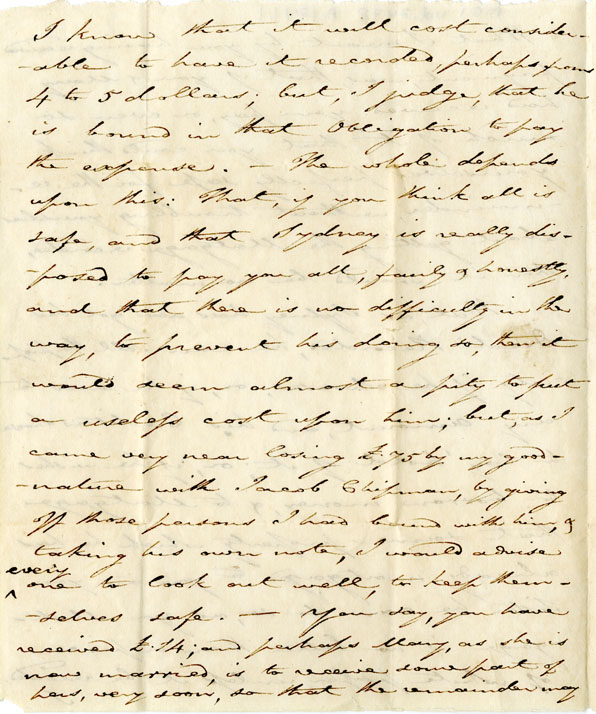 I know that it will cost consider-
-able to have it recorded, perhaps from
4 to 5 dollars; but, I judge, that he
is bound in that Obligation to pay
the expense. — The whole depends
upon this: That, if you think all is
safe, and that Sydney is really dis-
-posed to pay you all, fairly & honestly,
and that there is no difficulty in the
way, to prevent his doing so, then it
would seem almost a pity to put
a useless cost upon him; but, as I
came very near losing £75 by my good-
-nature with Jacob Chipman, by giving
off those persons I had bound with him, &
taking his own note, I would advise
every
^ one to look out well, to keep them-
-selves safe. — You say, you have
received £14; and perhaps Mary, as she is
now married, is to receive some part of
hers, very soon, so that the remainder may